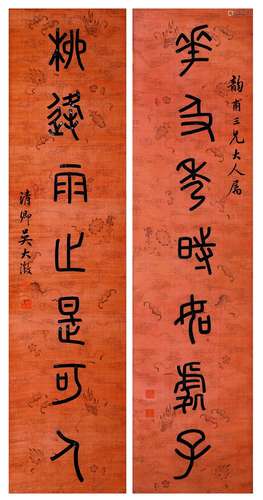 韻甫三兄大人屬
華及秀時如處子
桃逢雨止是可人
清卿吳大澂